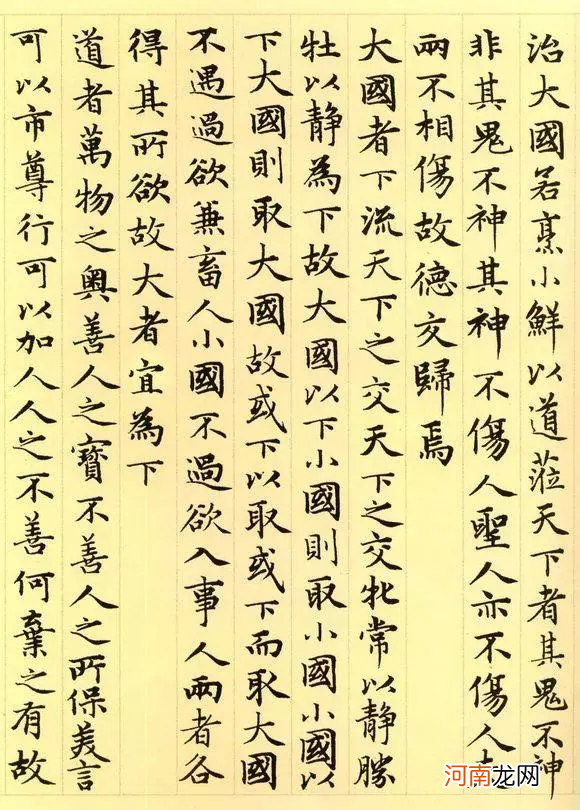 治大國若烹小鮮以道蒞天下者其鬼不神
非其鬼不神其神不傷人聖人亦不傷人
兩不相傷故德交歸焉
大國者下流天下之交天下之交牝常以靜勝
牡以靜為下故大國以下小國則取小國小國以
下大國則取大國故或下以取或下而取大國
不遇過欲兼畜人小國不過欲入事人兩者各
得其所欲故大者宜為下
道者萬物之奧善人之寶不善人之所保美言
可以市尊行可以加人人之不善何棄之有故
河南龙网